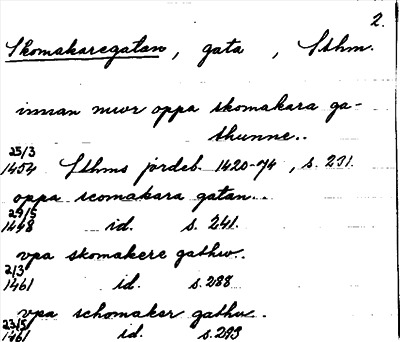 2.
Skomakaregatan, gata, Sthm.
innan mwr oppa skomakara ga-
thunne..
25/3
1454 Sthms jordeb. 1420-74, s. 231.
oppa scomakara gatan..
29/5
1448 id. s. 241.
vpa skomakere gathw..
2/3
1461 id. s. 288
vpa schomaker gathw..
23/5
1461 id. s. 293